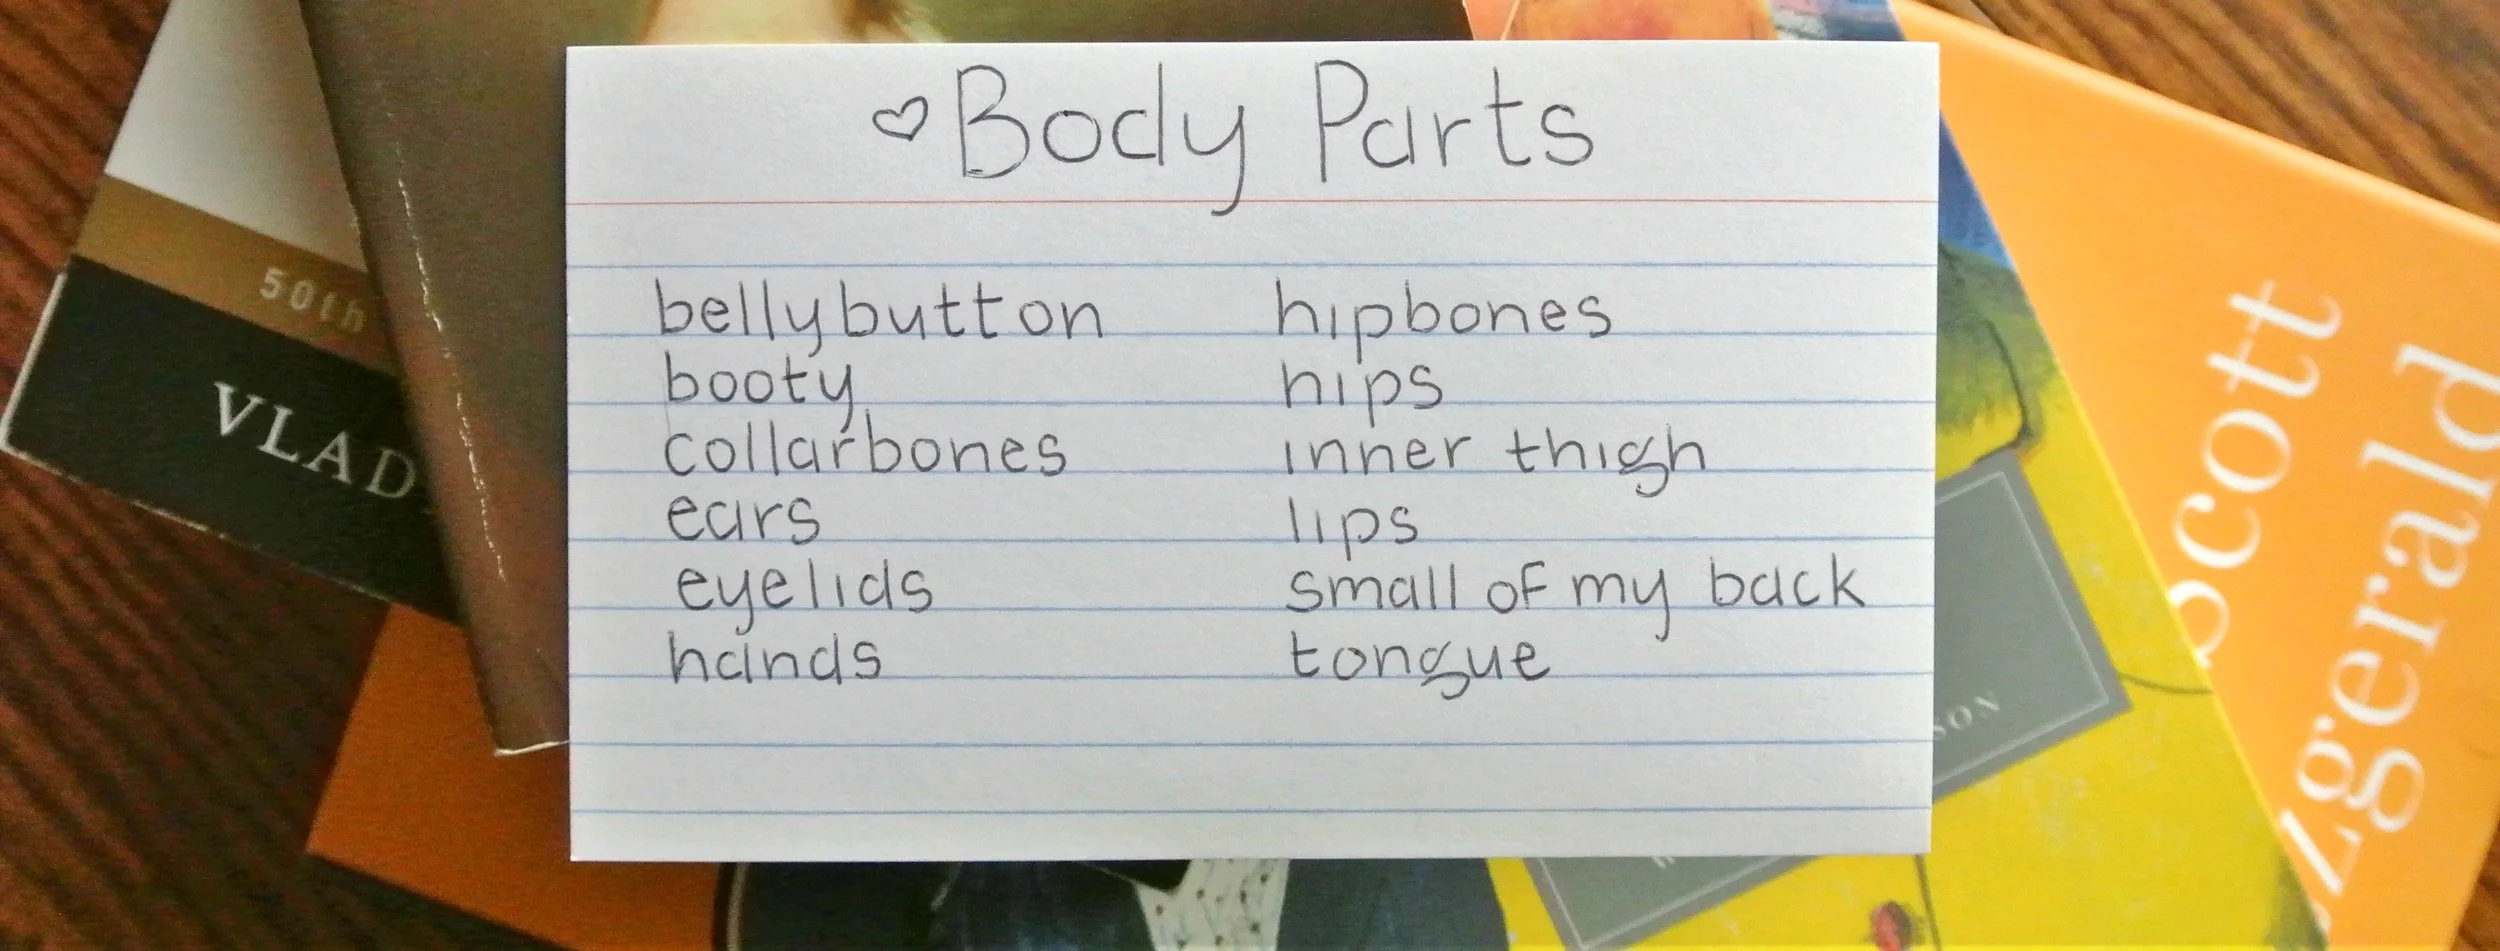 ♡ Body Parts
bellybutton
booty
collarbones
ears
eyelids
hands
hipbones
hips
inner thigh
lips
small of my back
tongue
50th
VLAD
Scott
zgerald
SON